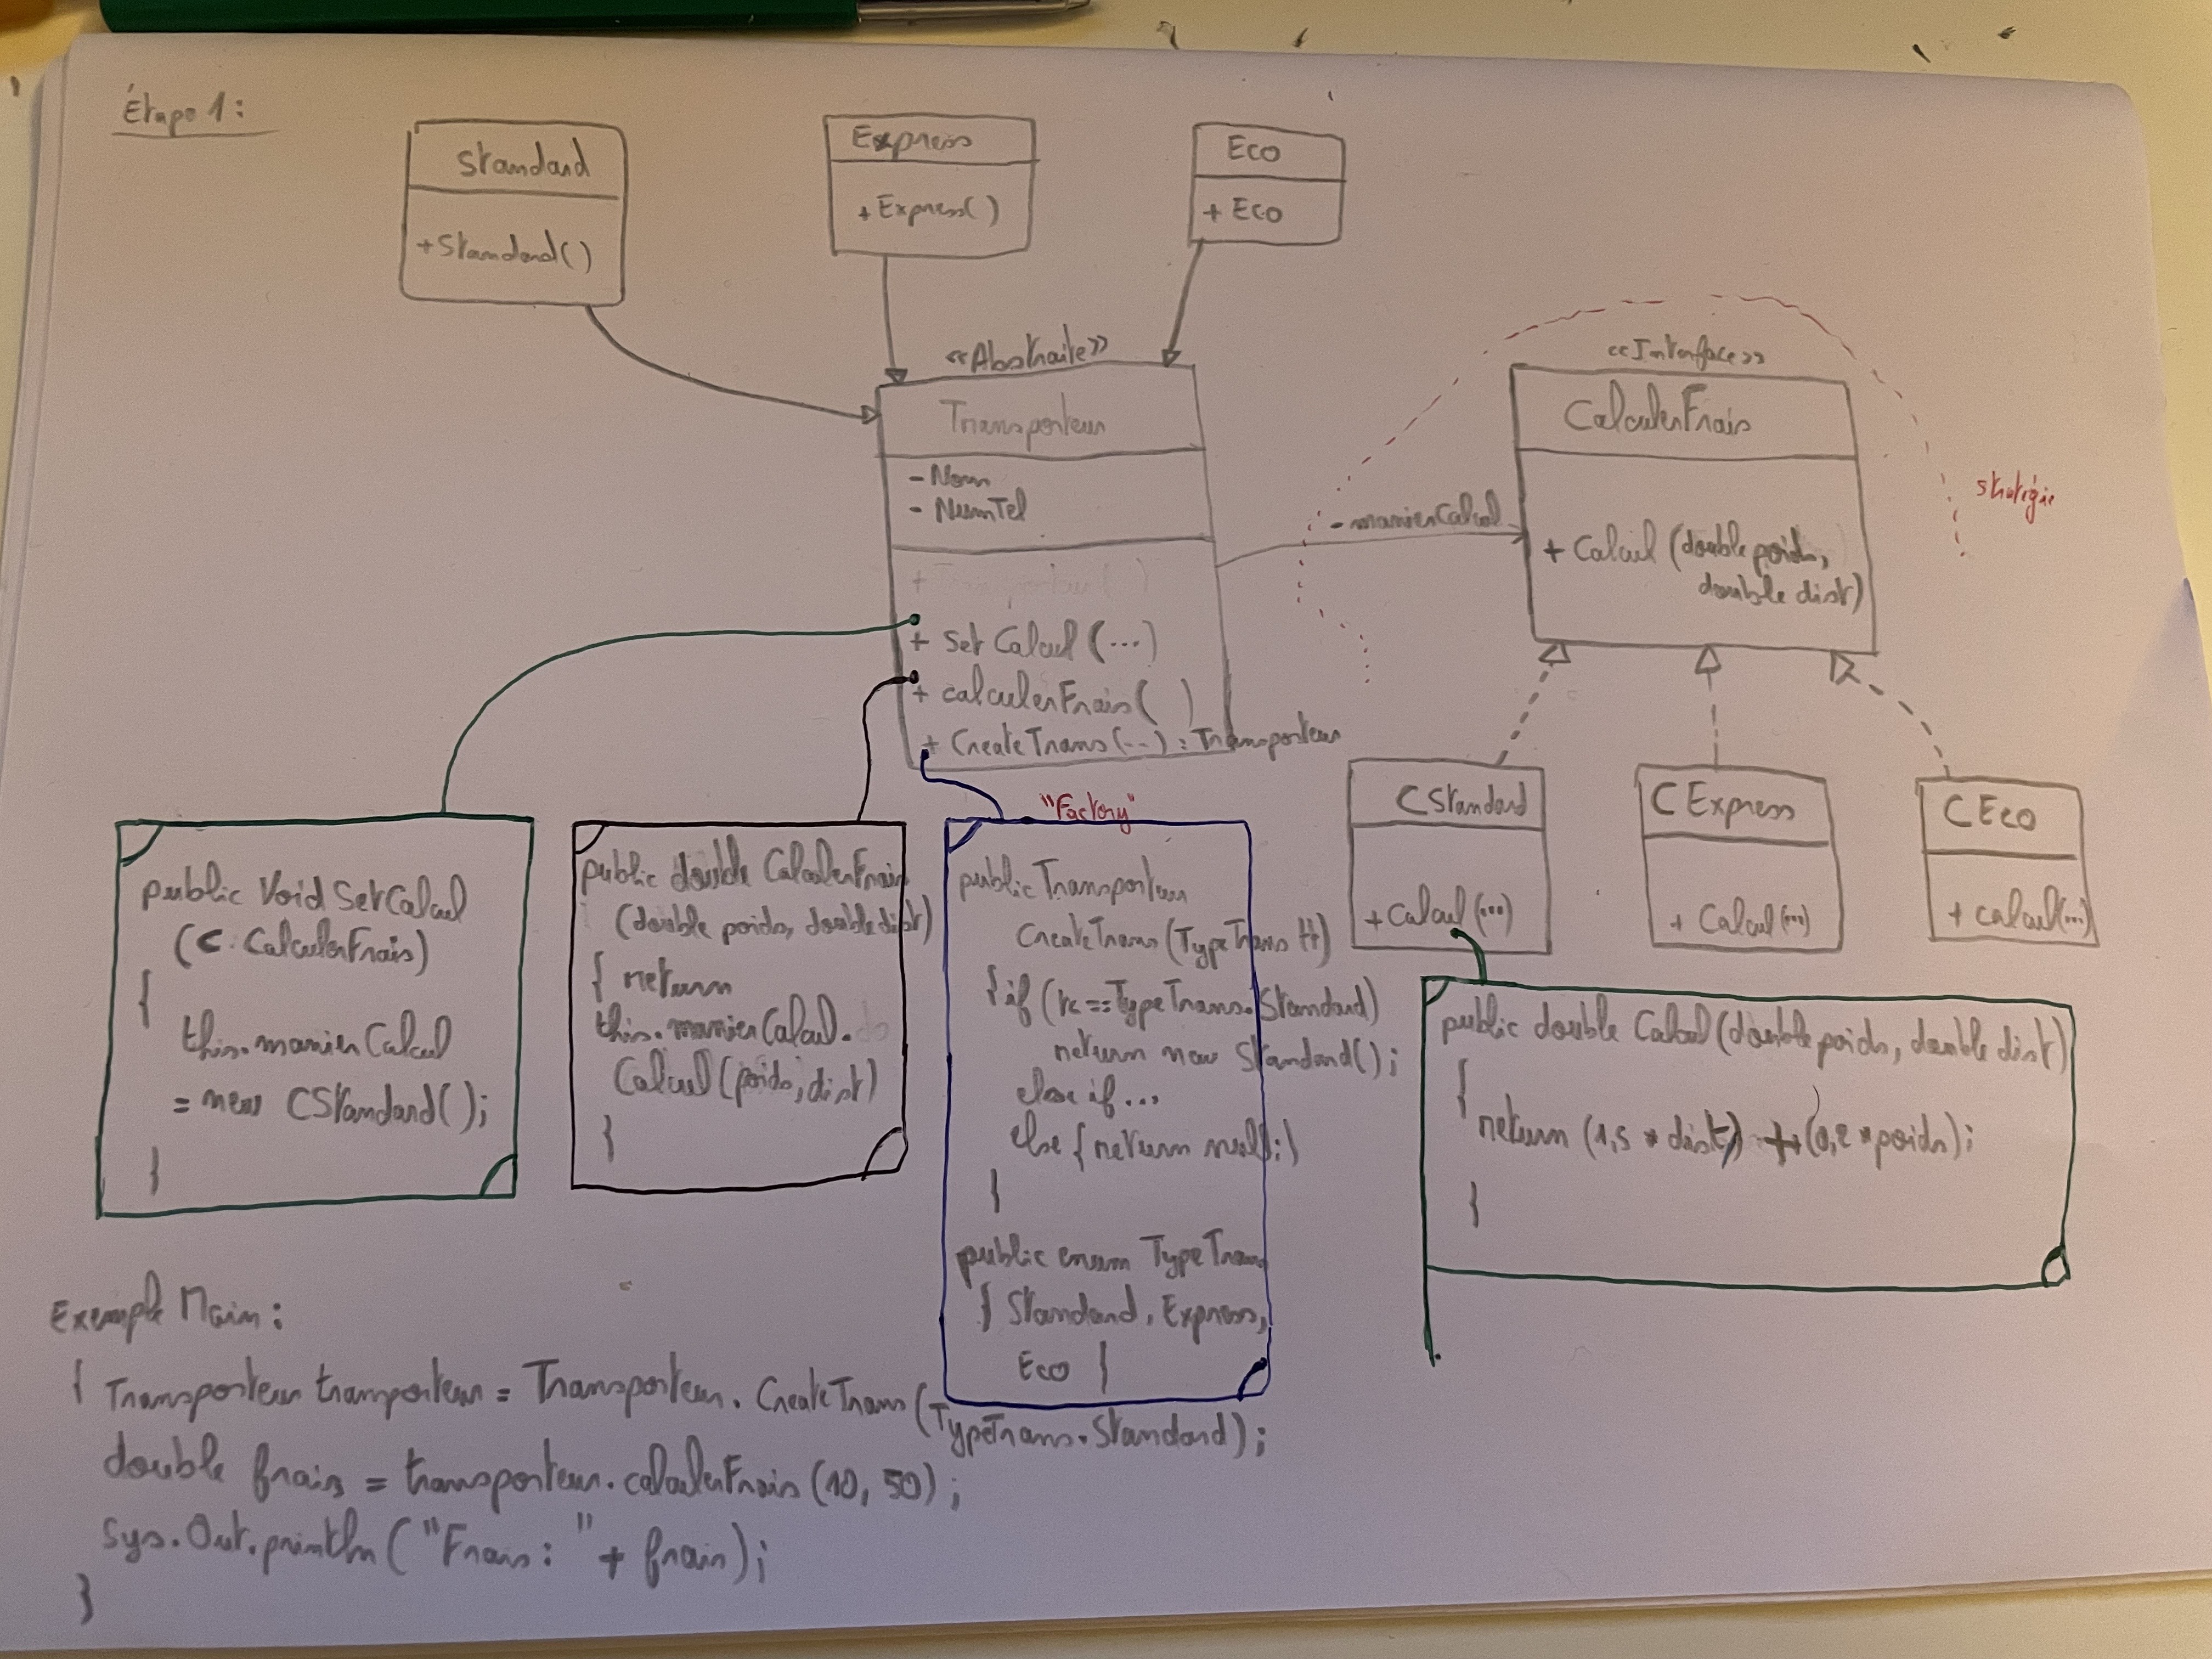 Étape 1 :
Standard
+ Standard()
Express
+ Express()
Eco
+ Eco
<<Abstraite>>
Transporteur
- Nom
- NumTel
+ setCalcul (...)
+ calculerFrais( )
+ CreateTrans(...) : Transporteur
- manierCalcul
<<Interface>>
CalculerFrais
+ Calcul (double poids,
double dist)
stratégie
CStandard
+ Calcul (...)
CExpress
+ Calcul(...)
CEco
+ calcul(...)
public Void SetCalcul
(c : CalculerFrais)
{
this.manierCalcul
= new CStandard();
}
public double CalculerFrais
(double poids, double dist)
{ return
this.manierCalcul.
Calcul (poids, dist)
}
"Factory"
public Transporteur
CreateTrans (TypeTrans tt)
{ if (tt == TypeTrans.Standard)
return new Standard();
else if ...
else { return null; }
}
public enum TypeTrans
{ Standard, Express,
Eco }
public double Calcul(double poids, double dist)
{
return (1,5 * dist) + (0,2 * poids);
}
Exemple Main :
{ Transporteur transporteur = Transporteur. CreateTrans (TypeTrans.Standard);
double frais = transporteur. calculerFrais (10, 50) ;
Sys.Out.println ("Frais : " + frais);
}